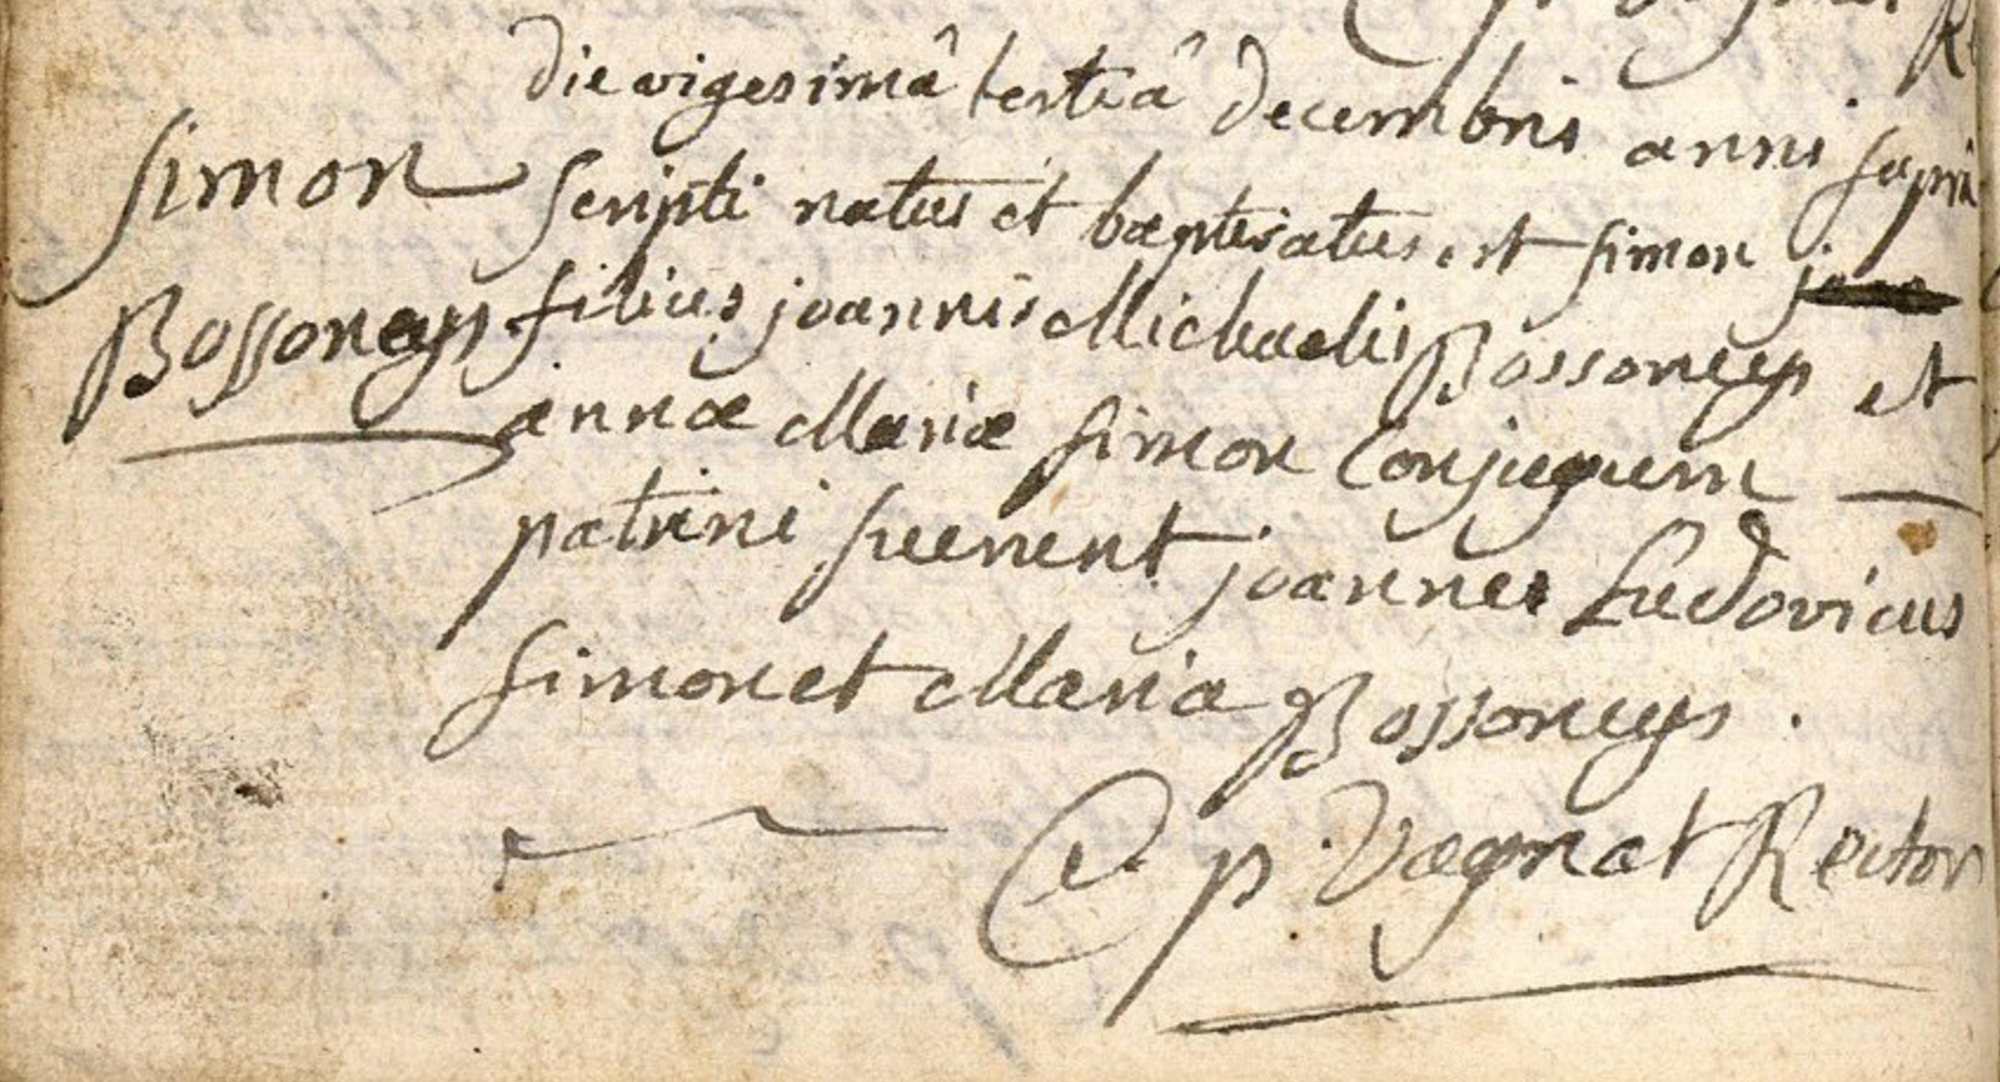 die vigesimâ tertiâ decembris anni supra
Simon
scripti natus et baptisatus est simon
Bossoneys
filius joannis Michaelis Bossoneys et
annæ Mariæ simon Conjugum —
patrini fuerunt joannes Ludovicus
simon et Maria Bossoneys .
p. Vagnat Rector